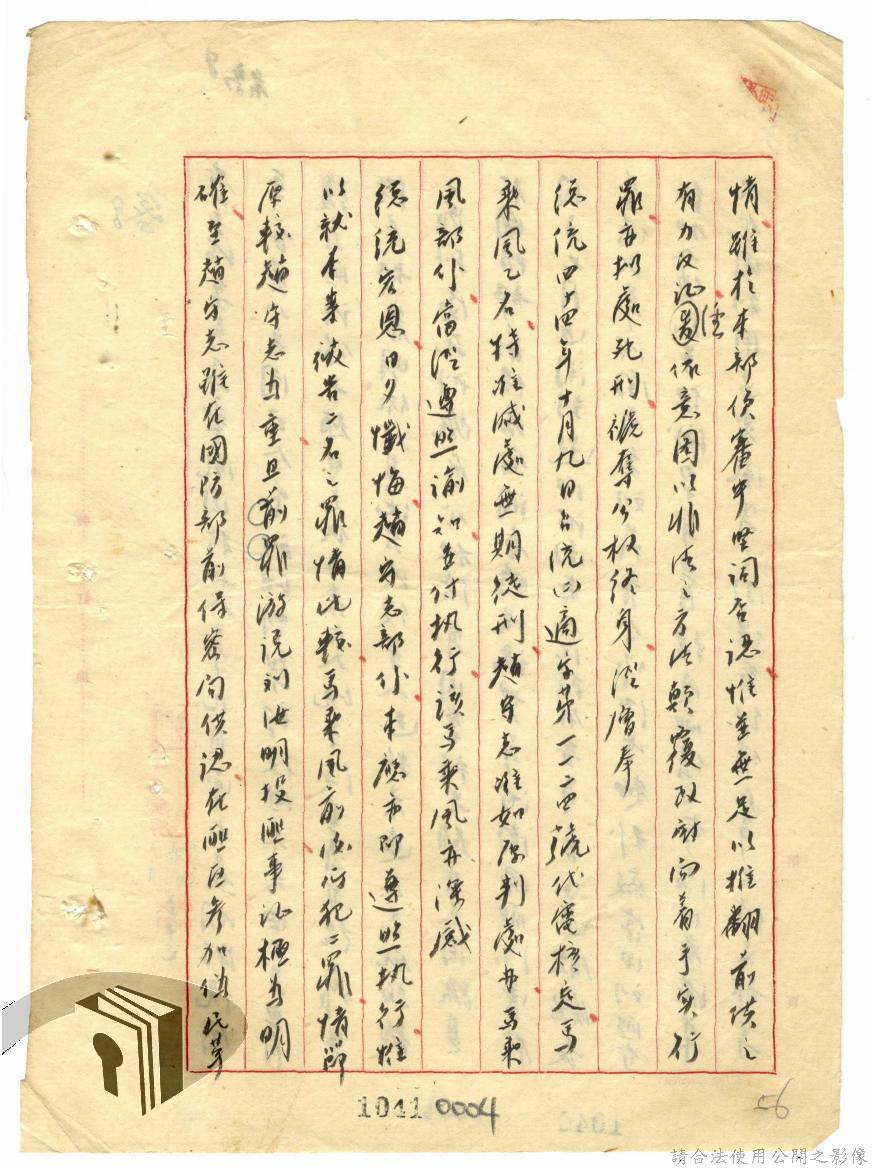 情雖於本部偵審中堅詞否認惟並無足以推翻前供之
有力反證遽依意圖以非法之方法顛覆政府而着手實行
罪亦擬處死刑褫奪公權終身澄層奉
總統四十四年十月九日台統㈡適字第一一二四號代電核定馬
乘風乙名特准減處無期徒刑趙守志准如原判處办馬乘
風部份當澄遵照諭知並付执行該馬乘風亦深感
總統宏恩日夕懺悔趙守志部份本應亦即遵照执行惟
以就本案被告二名之罪情比較馬乘風前後所犯二罪情節
原較趙守志为重且前罪游说刘汝明投匪事证極为明
確至趙守志雖在國防部前保密局供認在匪区參加偽民革
1041 0004
56
請合法使用公開之影像